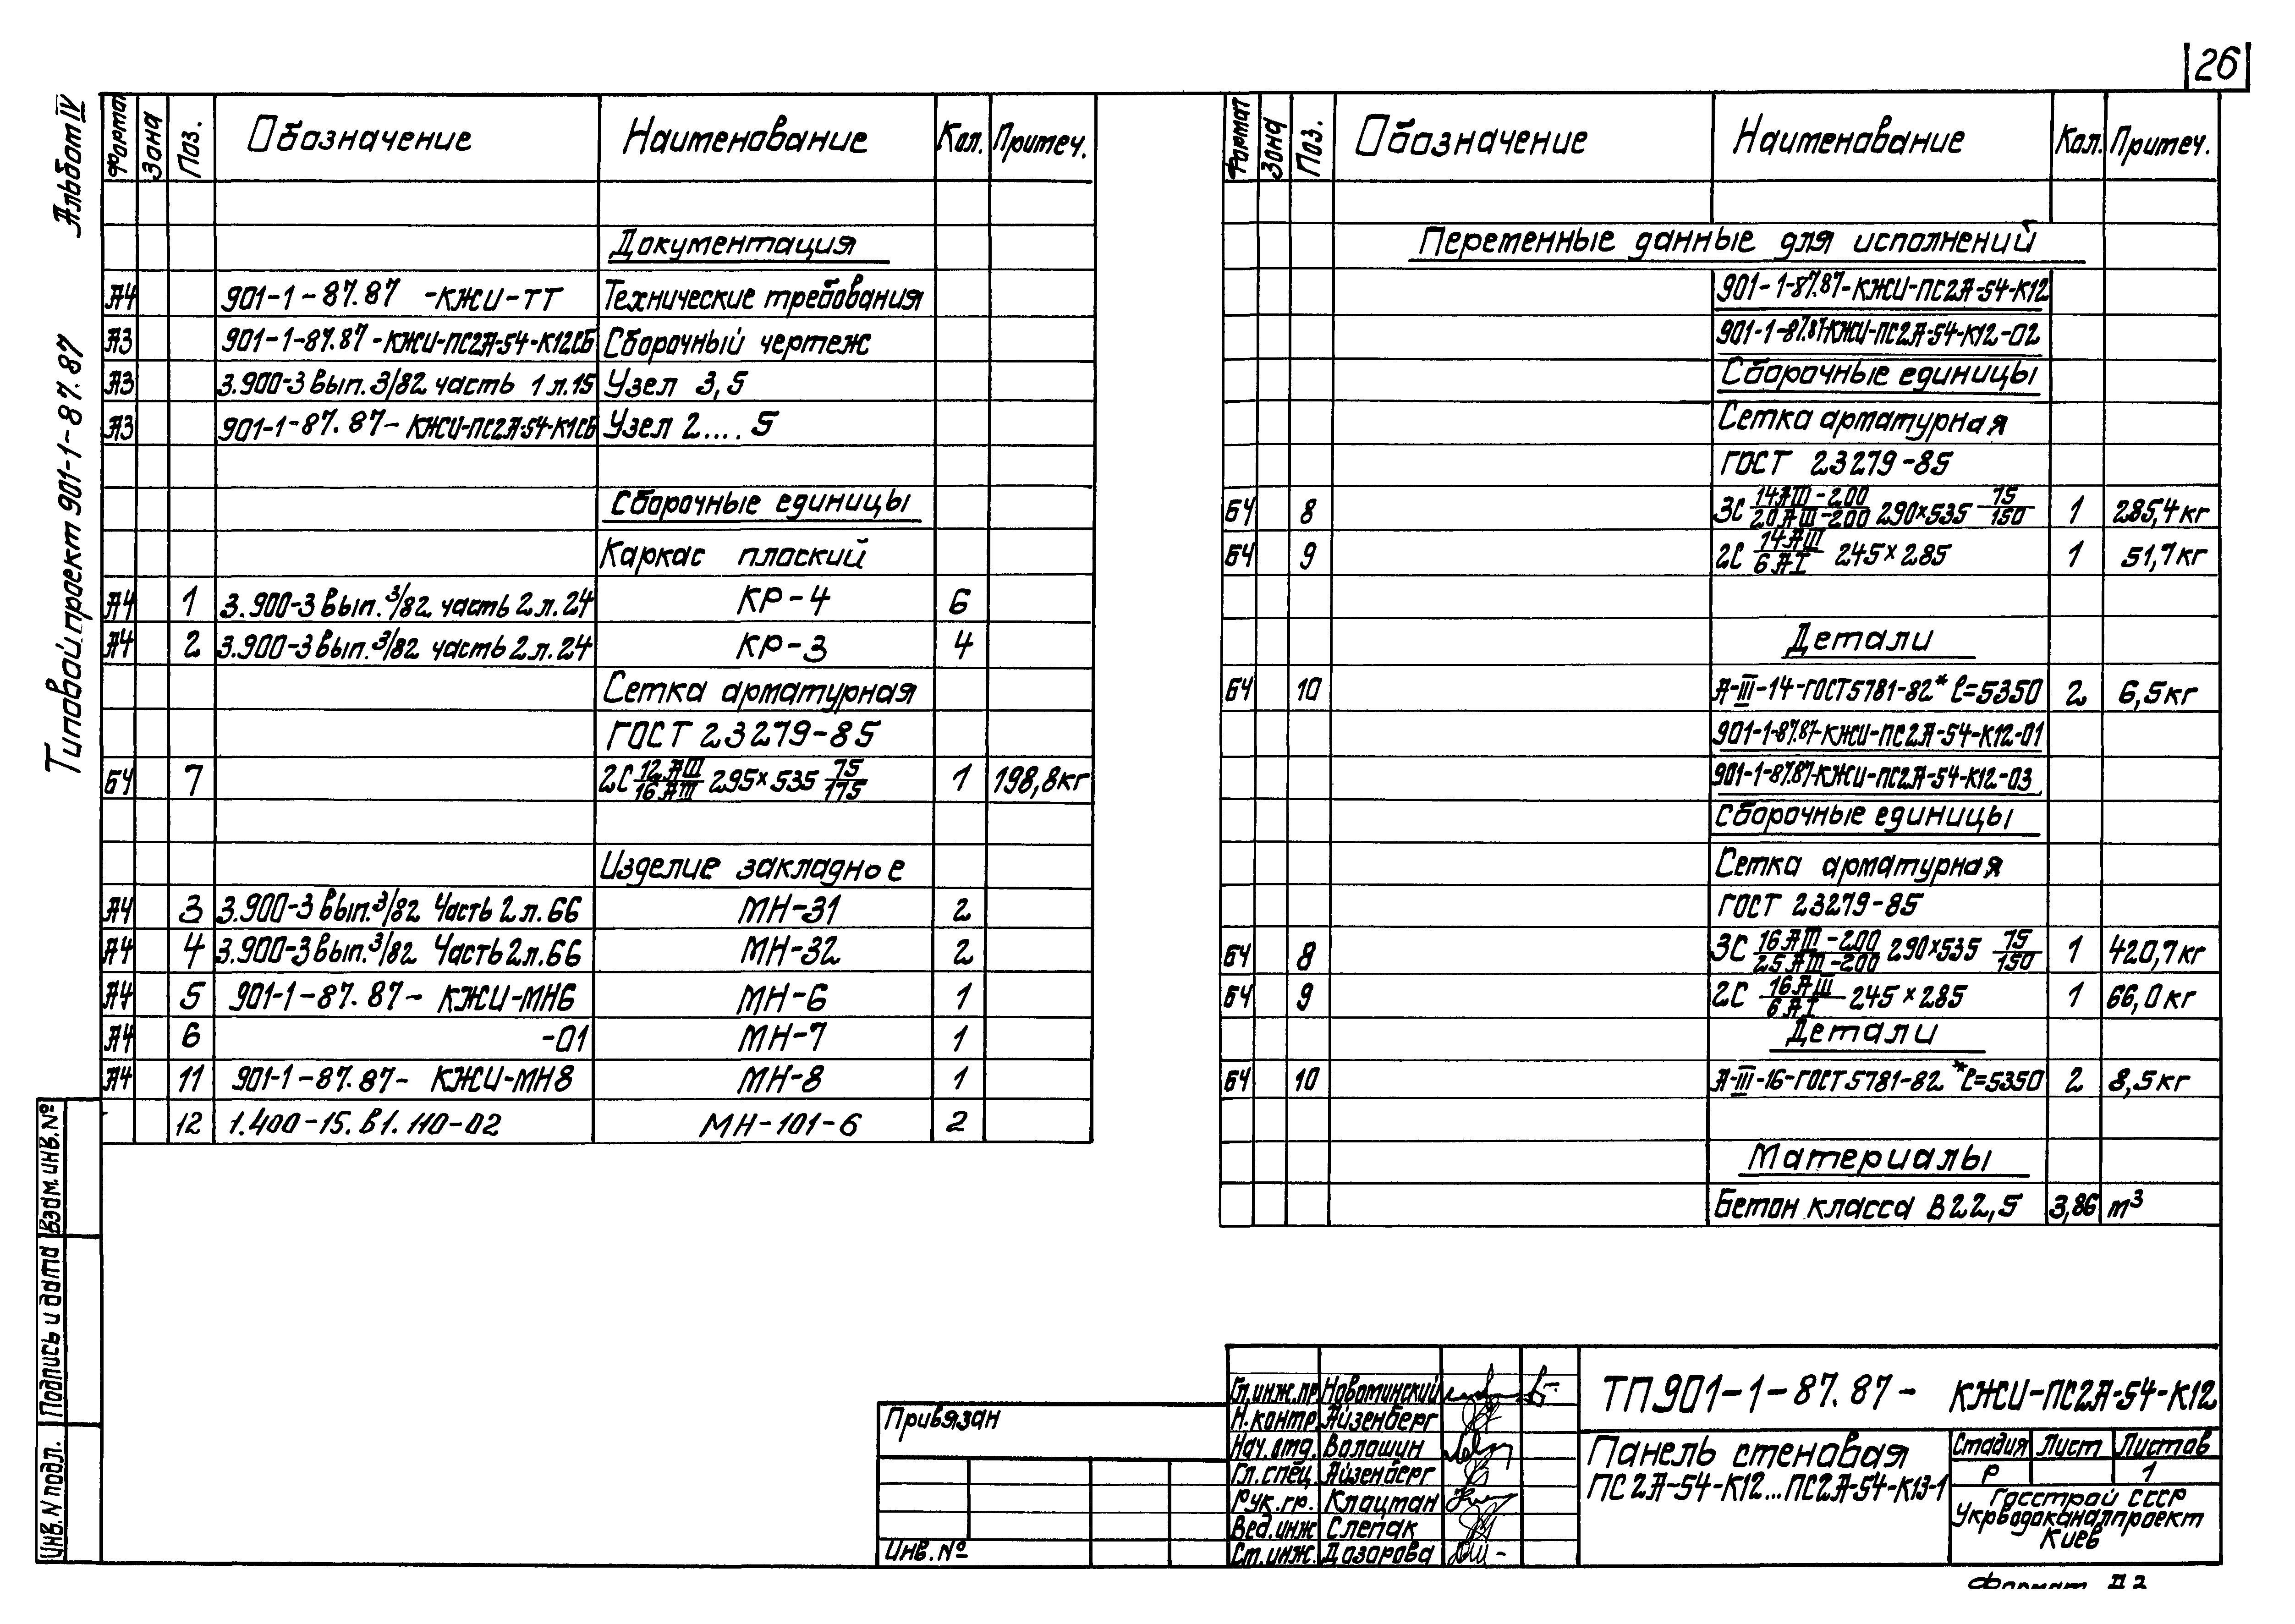 26
Альбом IV
Типовой проект 901-1-87.87
Формат Зона Поз. Обозначение Наименование Кол. Примеч.
Документация
А4 901-1-87.87 -КЖИ-ТТ Технические требования
А3 901-1-87.87-КЖИ-ПС2А-54-К12СБ Сборочный чертеж
А3 3.900-3 Вып. 3/82 часть 1 л.15 Узел 3,5
А3 901-1-87.87-КЖИ-ПС2А-54-К1СБ Узел 2....5
Сборочные единицы
Каркас плоский
А4 1 3.900-3 Вып. 3/82 часть 2 л. 24 КР-4 6
А4 2 3.900-3 Вып. 3/82 часть 2 л. 24 КР-3 4
Сетка арматурная
ГОСТ 23279-85
БЧ 7 2С 12АIII/16АIII 295×535 75/175 1 198,8кг
Изделие закладное
А4 3 3.900-3 Вып. 3/82 Часть 2 л. 66 МН-31 2
А4 4 3.900-3 Вып. 3/82 Часть 2 л. 66 МН-32 2
А4 5 901-1-87.87- КЖИ-МН6 МН-6 1
А4 6 -01 МН-7 1
А4 11 901-1-87.87- КЖИ-МН8 МН-8 1
12 1.400-15. В1. 110-02 МН-101-6 2
Формат Зона Поз. Обозначение Наименование Кол. Примеч.
Переменные данные для исполнений
901-1-87.87-КЖИ-ПС2А-54-К12
901-1-87.87-КЖИ-ПС2А-54-К12-02
Сборочные единицы
Сетка арматурная
ГОСТ 23279-85
БЧ 8 3С 14АIII-200/20АIII-200 290×535 75/150 1 285,4кг
БЧ 9 2С 14АIII/6АI 245×285 1 51,7кг
Детали
БЧ 10 А-III-14-ГОСТ5781-82* ℓ=5350 2 6,5кг
901-1-87.87-КЖИ-ПС2А-54-К12-01
901-1-87.87-КЖИ-ПС2А-54-К12-03
Сборочные единицы
Сетка арматурная
ГОСТ 23279-85
БЧ 8 3С 16АIII-200/25АIII-200 290×535 75/150 1 420,7кг
БЧ 9 2С 16АIII/6АI 245×285 1 66,0кг
Детали
БЧ 10 А-III-16-ГОСТ5781-82* ℓ=5350 2 8,5кг
Материалы
Бетон класса В22,5 3,86 m³
Взам. инв. №
Подпись и дата
Инв. N подл.
Привязан
Инв. №
Гл.инж.пр. Новоминский
Н.контр. Айзенберг
Нач. отд. Валашин
Гл.спец. Айзенберг
Рук.гр. Клацман
Вед.инж Слепак
Ст.инж. Дозорова
ТП901-1-87.87- КЖИ-ПС2А-54-К12
Панель стеновая
ПС2А-54-К12...ПС2А-54-К13-1
Стадия Лист Листов
Р 1
Госстрой СССР
Укрводоканалпроект
Киев
Формат А2